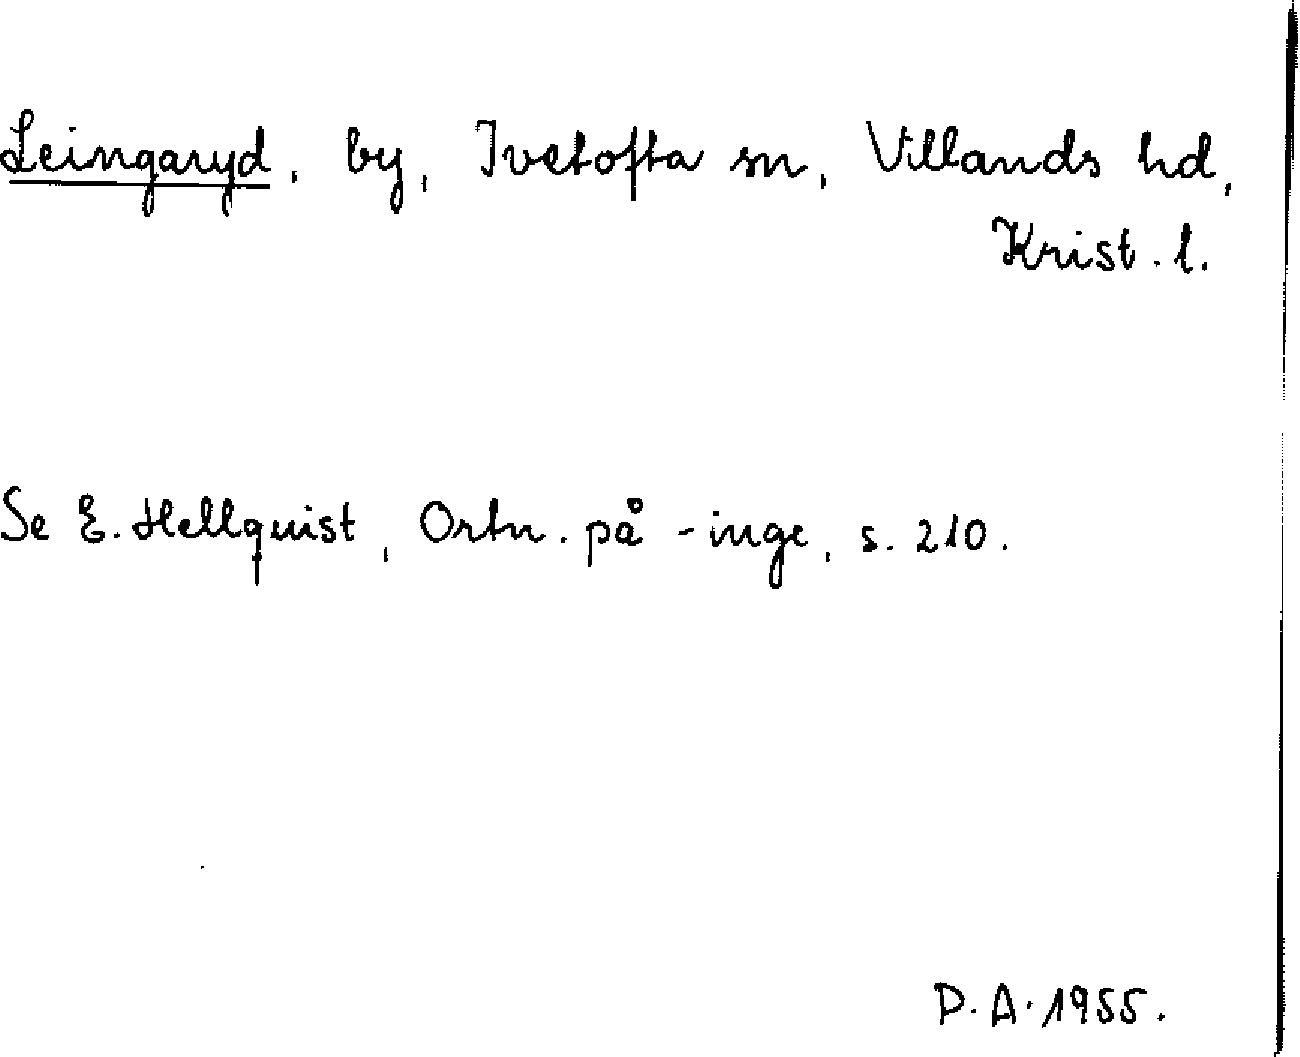 Leingaryd, by, Ivetofta sn, Villands hd,
Krist. l.
Se E. Hellquist, Ortn. på -inge, s. 210.
D. A. 1955.